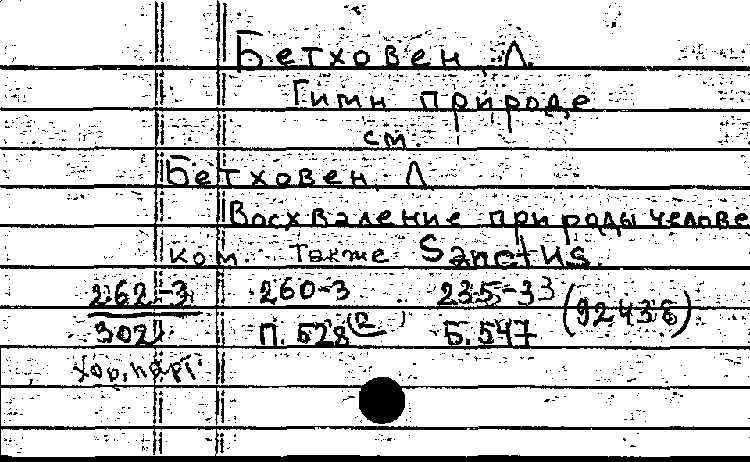 Бетховен, Л.
Гимн природе
см.
Бетховен, Л.
Восхваление природы челове
ком. Также Sanctus.
262-3 260-3 235-33 (92436)
302 П. 528 Б. 547
хор. парт.